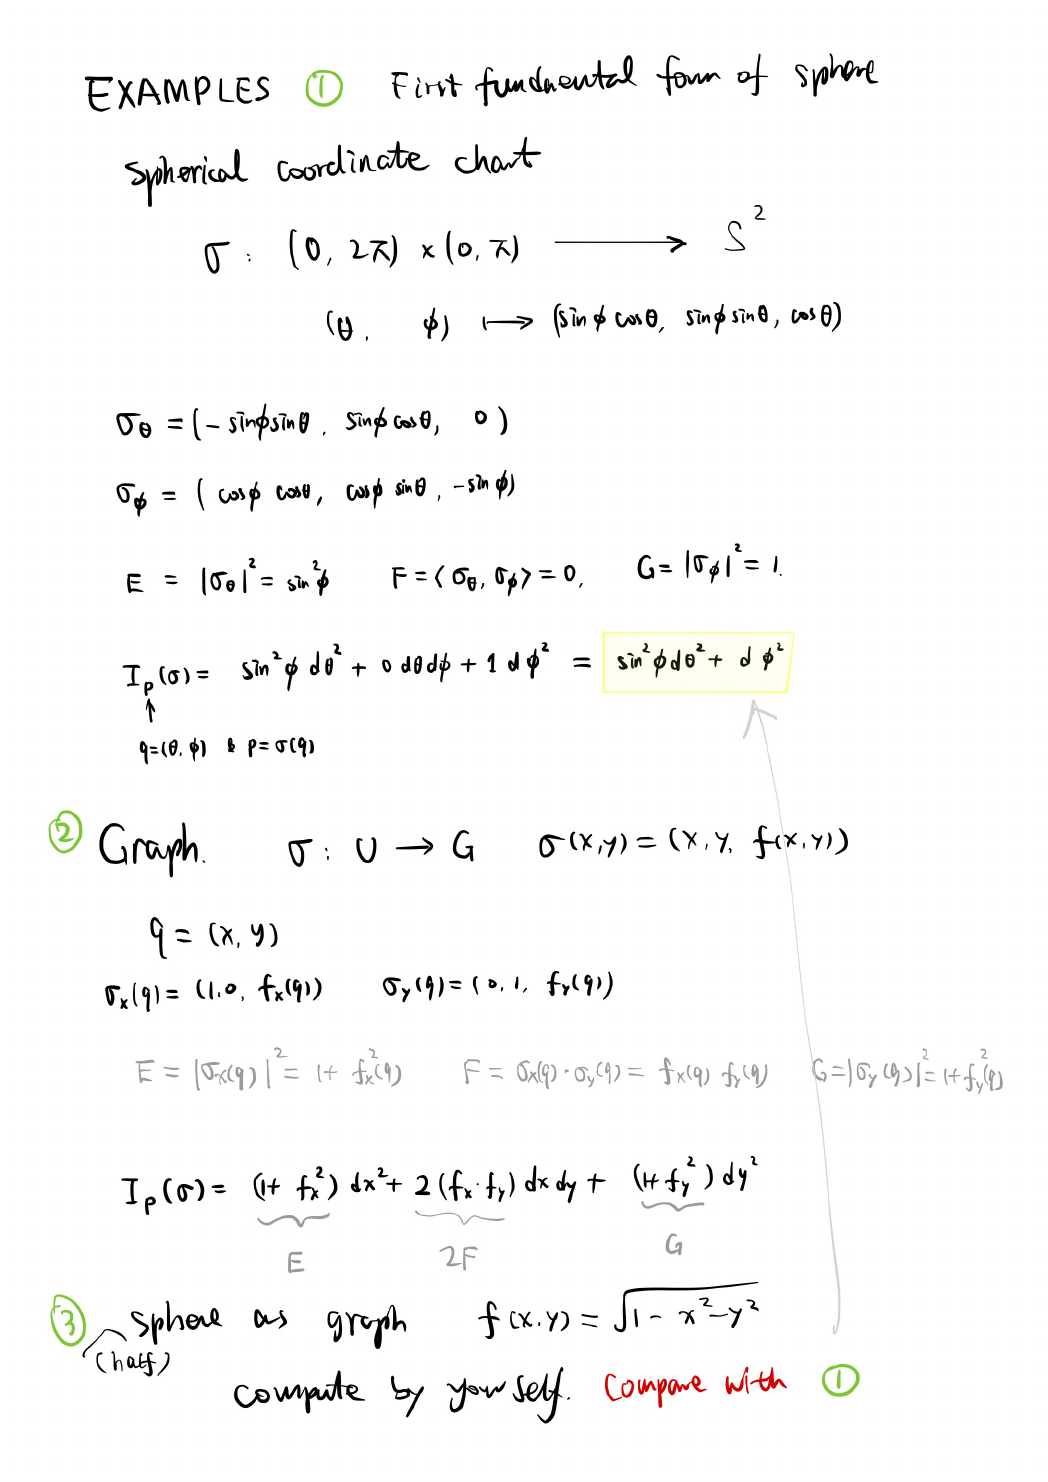 EXAMPLES ① First fundamental form of sphere
spherical coordinate chart
σ : (0, 2π) × (0, π) ⟶ S²
(θ, ϕ) ⟼ (sinϕ cosθ, sinϕ sinθ, cosθ)
σ_θ = (- sinϕ sinθ, sinϕ cosθ, 0)
σ_ϕ = (cosϕ cosθ, cosϕ sinθ, -sinϕ)
E = |σ_θ|² = sin²ϕ F = ⟨σ_θ, σ_ϕ⟩ = 0, G = |σ_ϕ|² = 1.
I_p(σ) = sin²ϕ dθ² + 0 dθdϕ + 1 dϕ² = sin²ϕdθ² + dϕ²
↑
q=(θ, ϕ) & p=σ(q)
② Graph. σ : U → G σ(x,y) = (x, y, f(x,y))
q = (x, y)
σ_x(q) = (1, 0, f_x(q)) σ_y(q) = (0, 1, f_y(q))
E = |σ_x(q)|² = 1+ f_x²(q) F = σ_x(q)·σ_y(q) = f_x(q) f_y(q) G = |σ_y(q)|² = 1+f_y²(q)
I_p(σ) = (1+ f_x²) dx² + 2(f_x·f_y) dx dy + (1+f_y²) dy²
E 2F G
③ sphere as graph f(x,y) = √(1 - x² - y²)
(half)
compute by yourself. Compare with ①